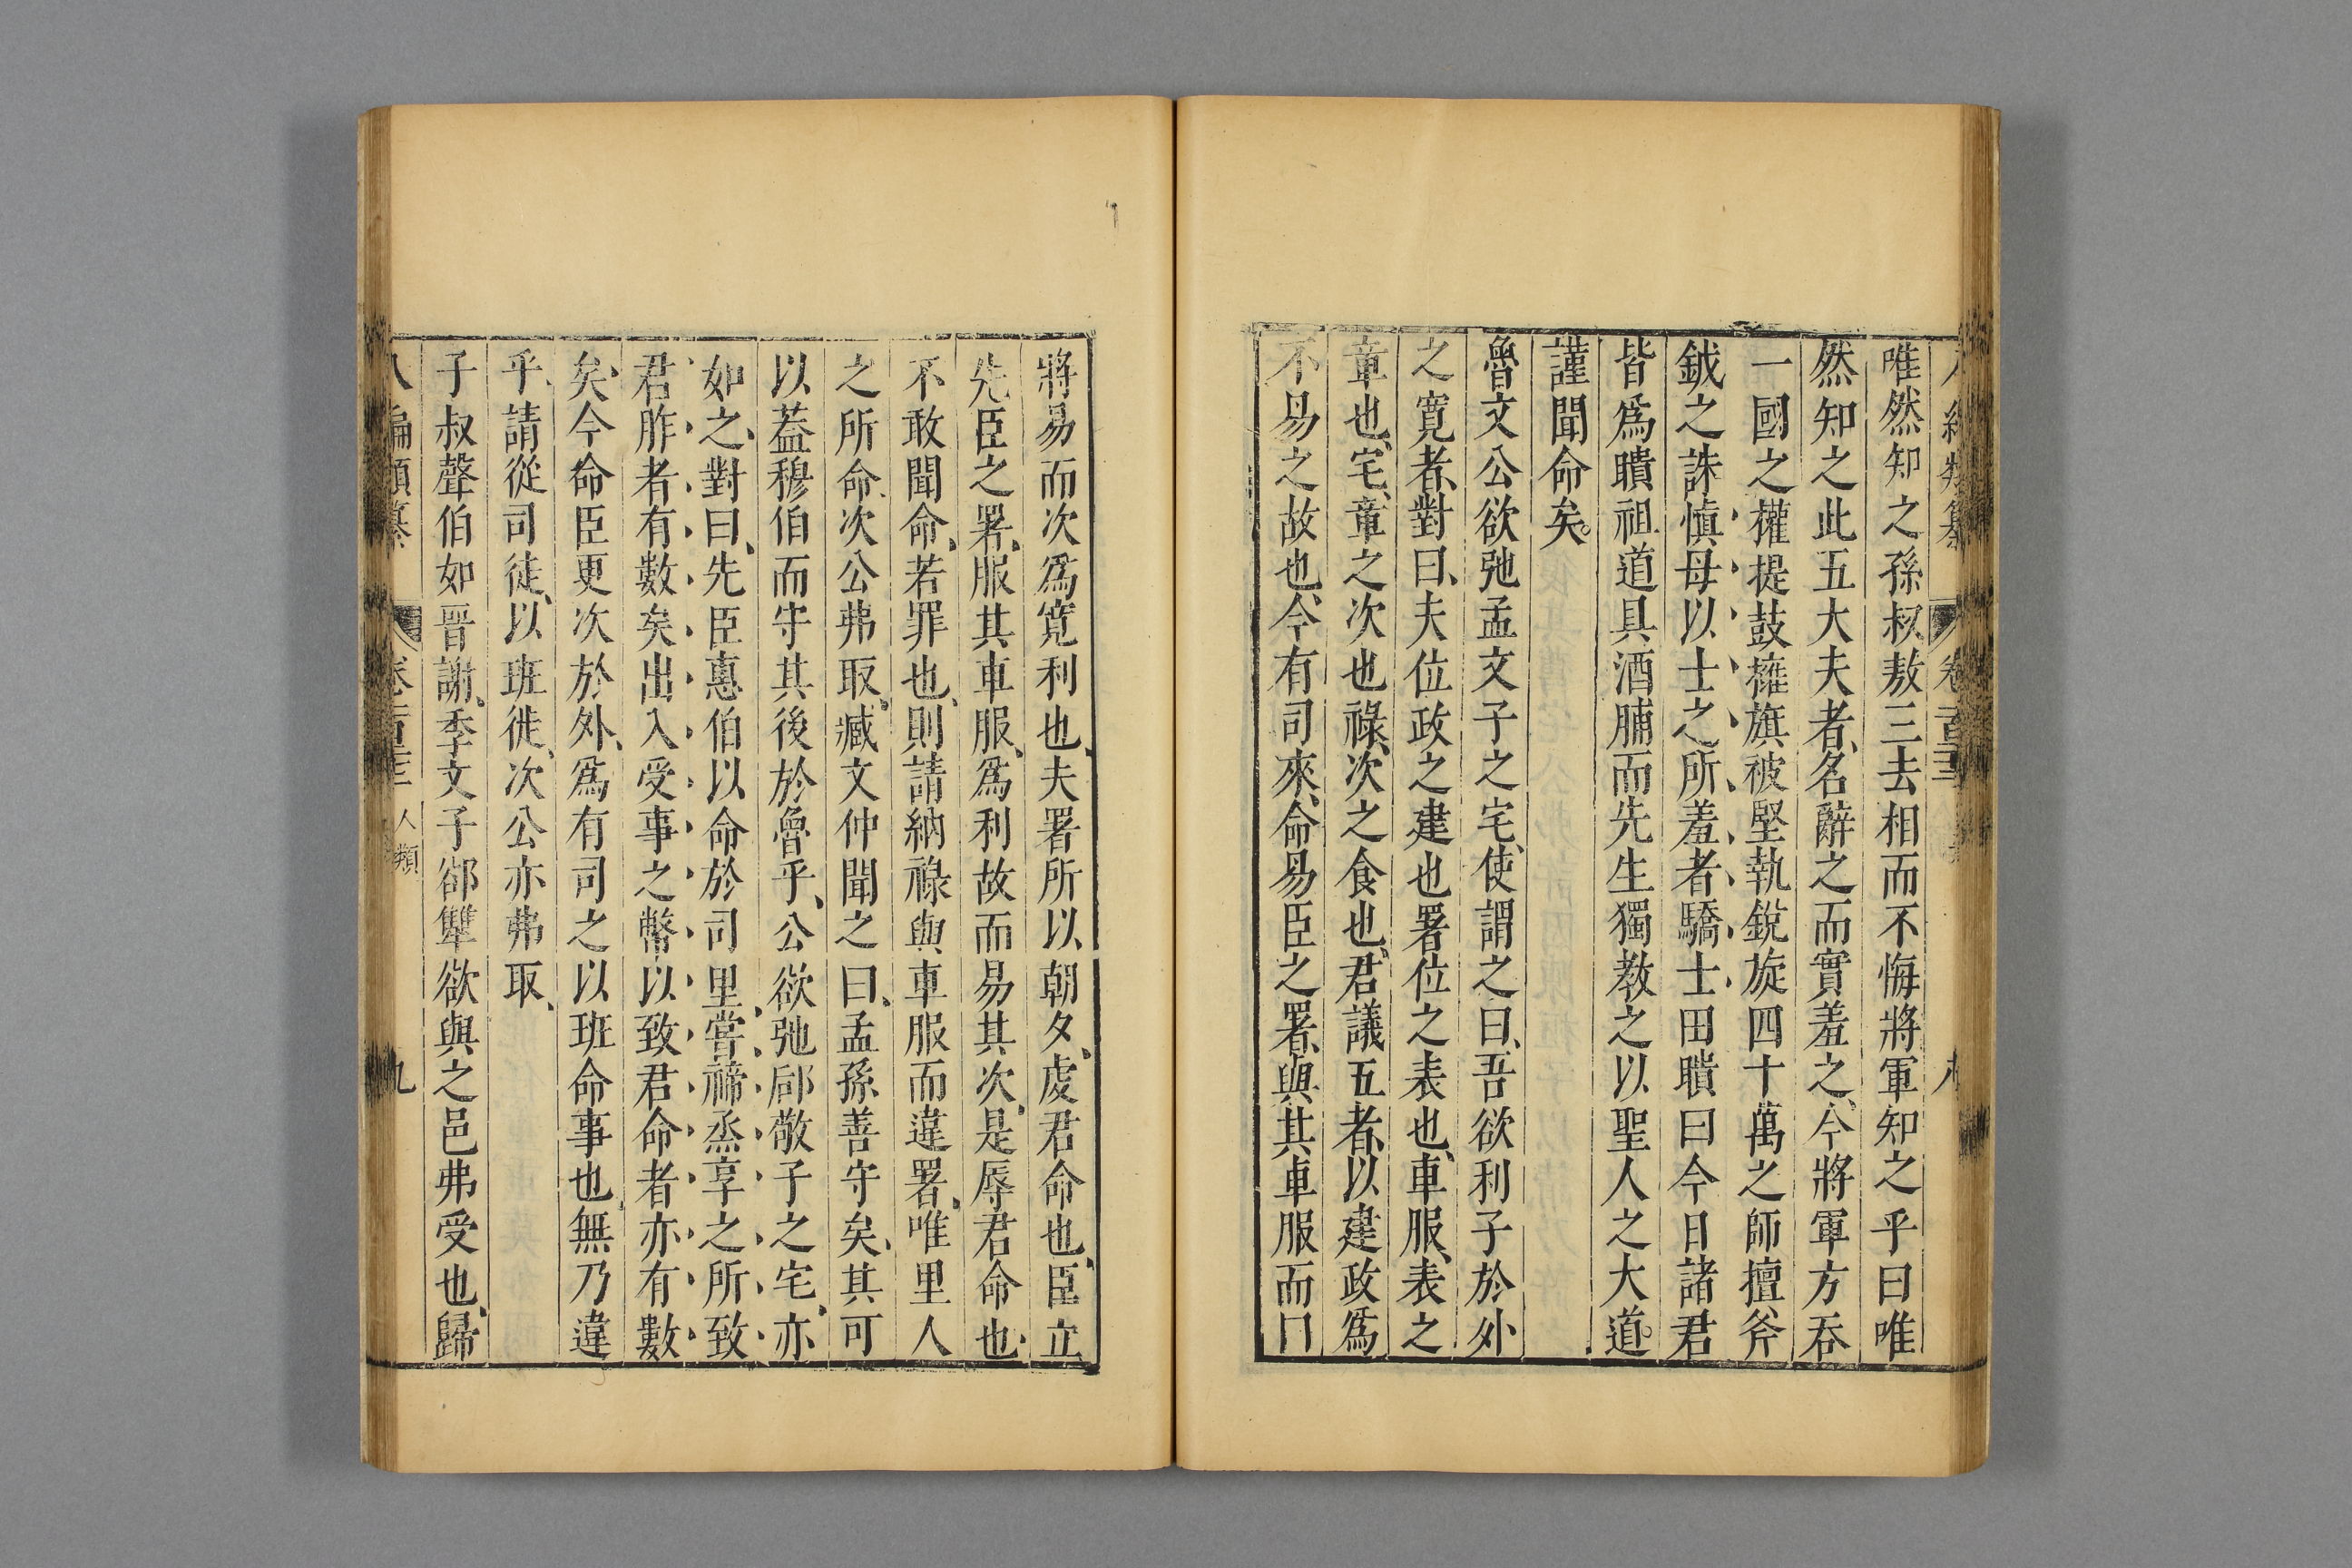 唯然知之孫叔敖三去相而不悔將軍知之乎曰唯
然知之此五大夫者、名辭之而實羞之、今將軍方吞
一國之權提鼓擁旗被堅執銳旋四十萬之師擅斧
鉞之誅慎毋以士之所羞者驕士田聵曰今日諸君
皆爲聵祖道具酒脯而先生獨教之以聖人之大道
謹聞命矣。
魯文公欲弛孟文子之宅、使謂之曰、吾欲利子於外
之寬者、對曰、夫位政之建也署位之表也、車服、表之
章也、宅、章之次也祿、次之食也、君議五者、以建政爲
不易之故也、今有司來、命易臣之署、與其車服而曰
將易而次爲寬利也、夫署所以朝夕、虔君命也、臣立
先臣之署、服其車服、爲利故而易其次、是辱君命也、
不敢聞命、若罪也、則請納祿與車服而違署、唯里人
之所命、次公弗取、臧文仲聞之曰、孟孫善守矣、其可
以葢穆伯而守其後於魯乎、公欲弛郈敬子之宅、亦
如之、對曰、先臣惠伯以命於司里、嘗禘烝享之所致
君胙者有數矣出入受事之幣以致君命者亦有數
矣、今命臣更次於外、爲有司之以班命事也、無乃違
乎、請從司徒、以班徙、次公亦弗取、
子叔聲伯如晉謝、季文子郤犨欲與之邑弗受也、歸
八編類纂
卷一百十三
人類
九